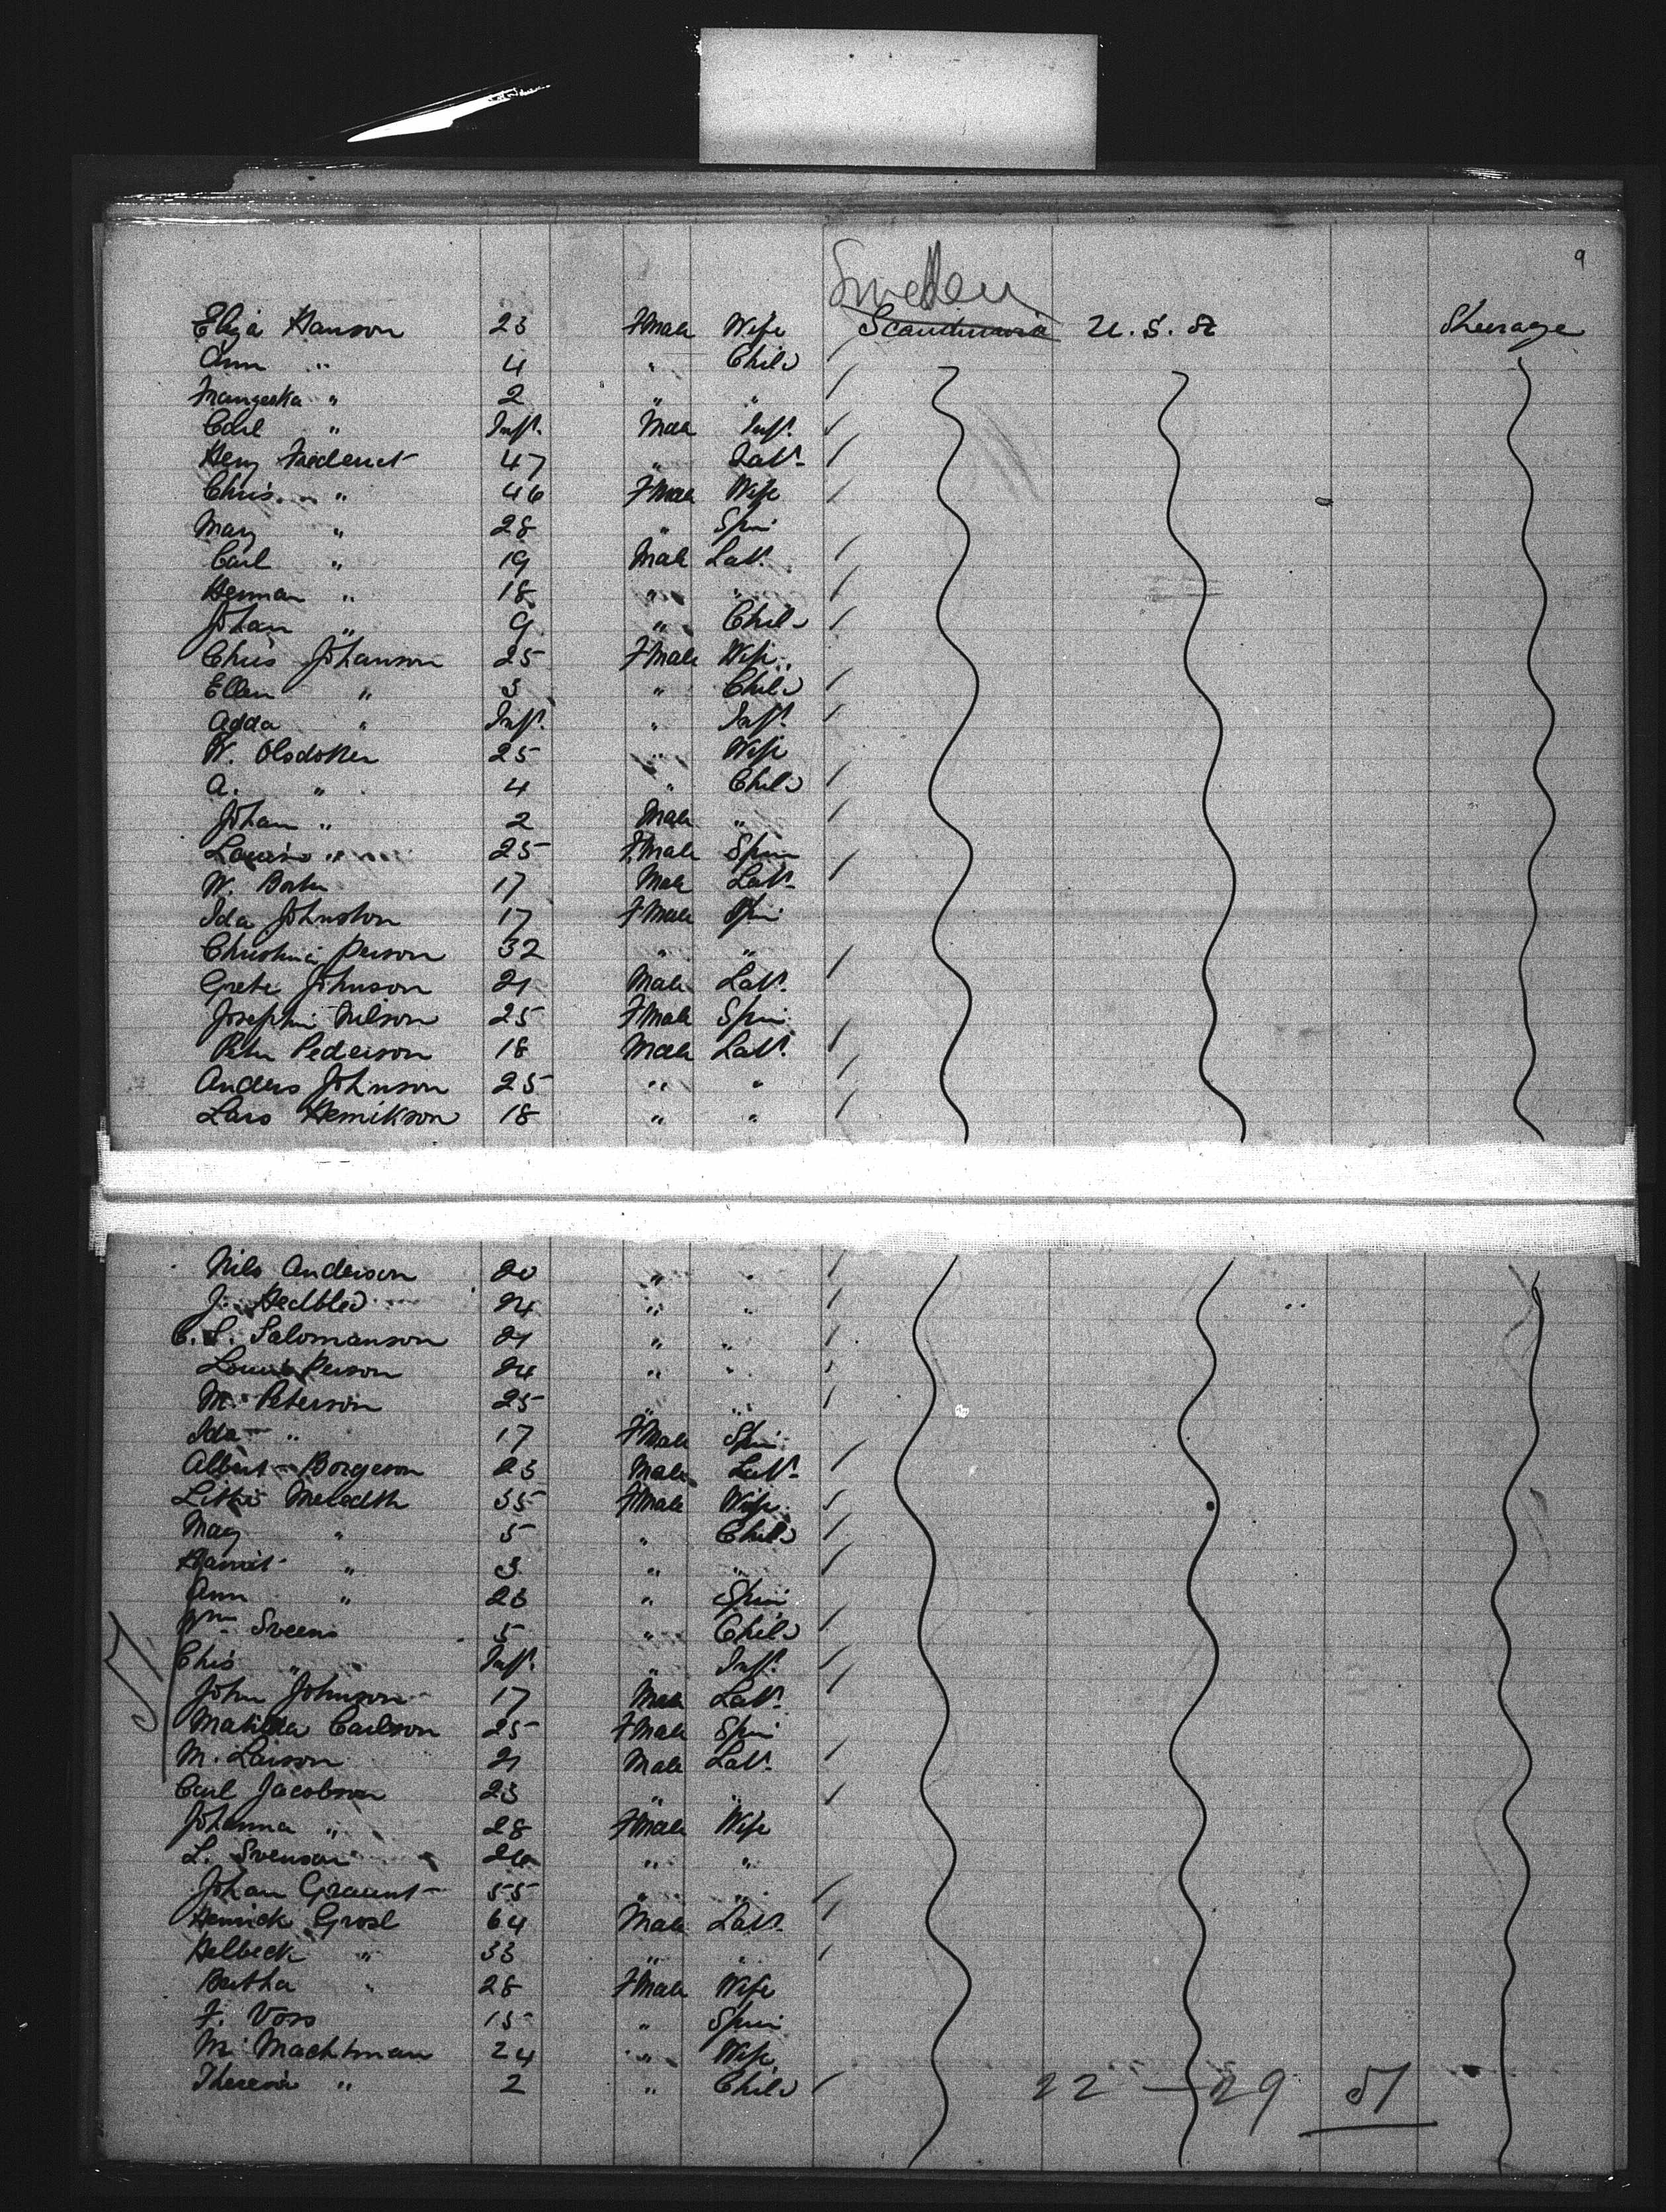 9
Sweden
Eliza Hanson 23 Fmale Wife Scandinavia U.S. of Steerage
Ann " 4 " Child
Frangeska " 2 " "
Carl " Inft. Male Inft.
Heny Frederick 47 " Lab.
Chris " 46 Fmale Wife
Mary " 28 " Spin
Carl " 19 Male Lab.
Herman " 18 " "
Johan " 9 " Child
Chris Johanson 25 Fmale Wife
Ellen " 3 " Child
Adda " Inft. " Inft.
W. 25 " Wife
A. " 4 " Child
Johan " 2 Male "
Louis " 25 Fmale Spin
W. 17 Male Lab.
Ida Johnston 17 Fmale Spin
Christina Person 32 " "
Grete Johnson 21 Male Lab.
Josephin Nilson 25 Fmale Spin
Peter Pederson 18 Male Lab.
Anders Johnson 25 " "
Lars Henrikson 18 " "
Nils Anderson 20 " "
J. Hedbled 24 " "
C. S. Salomanson 21 " "
Louis Person 24 " "
M. Peterson 25 " "
Ida " 17 Fmale Spin
Albert Borgeson 23 Male Lab.
Meredith 35 Fmale Wife
Mary " 5 " Child
Harriet " 3 " "
Ann " 23 " Spin
Wm Sveens 5 " Child
Chris " Inft. " Inft.
John Johnson 17 Male Lab.
Matilda Carlson 25 Fmale Spin
M. Larson 21 Male Lab.
Carl Jacobson 23 " "
Johanna " 28 Fmale Wife
L. Svenson 26 " "
Johan Graunt 55 " "
Henrick Grosl 64 Male Lab.
Helbeck " 33 " "
Bertha " 28 Fmale Wife
F. Voss 15 " Spin
M. Machtman 24 " Wife
Theresia " 2 " Child
22 - 29 51